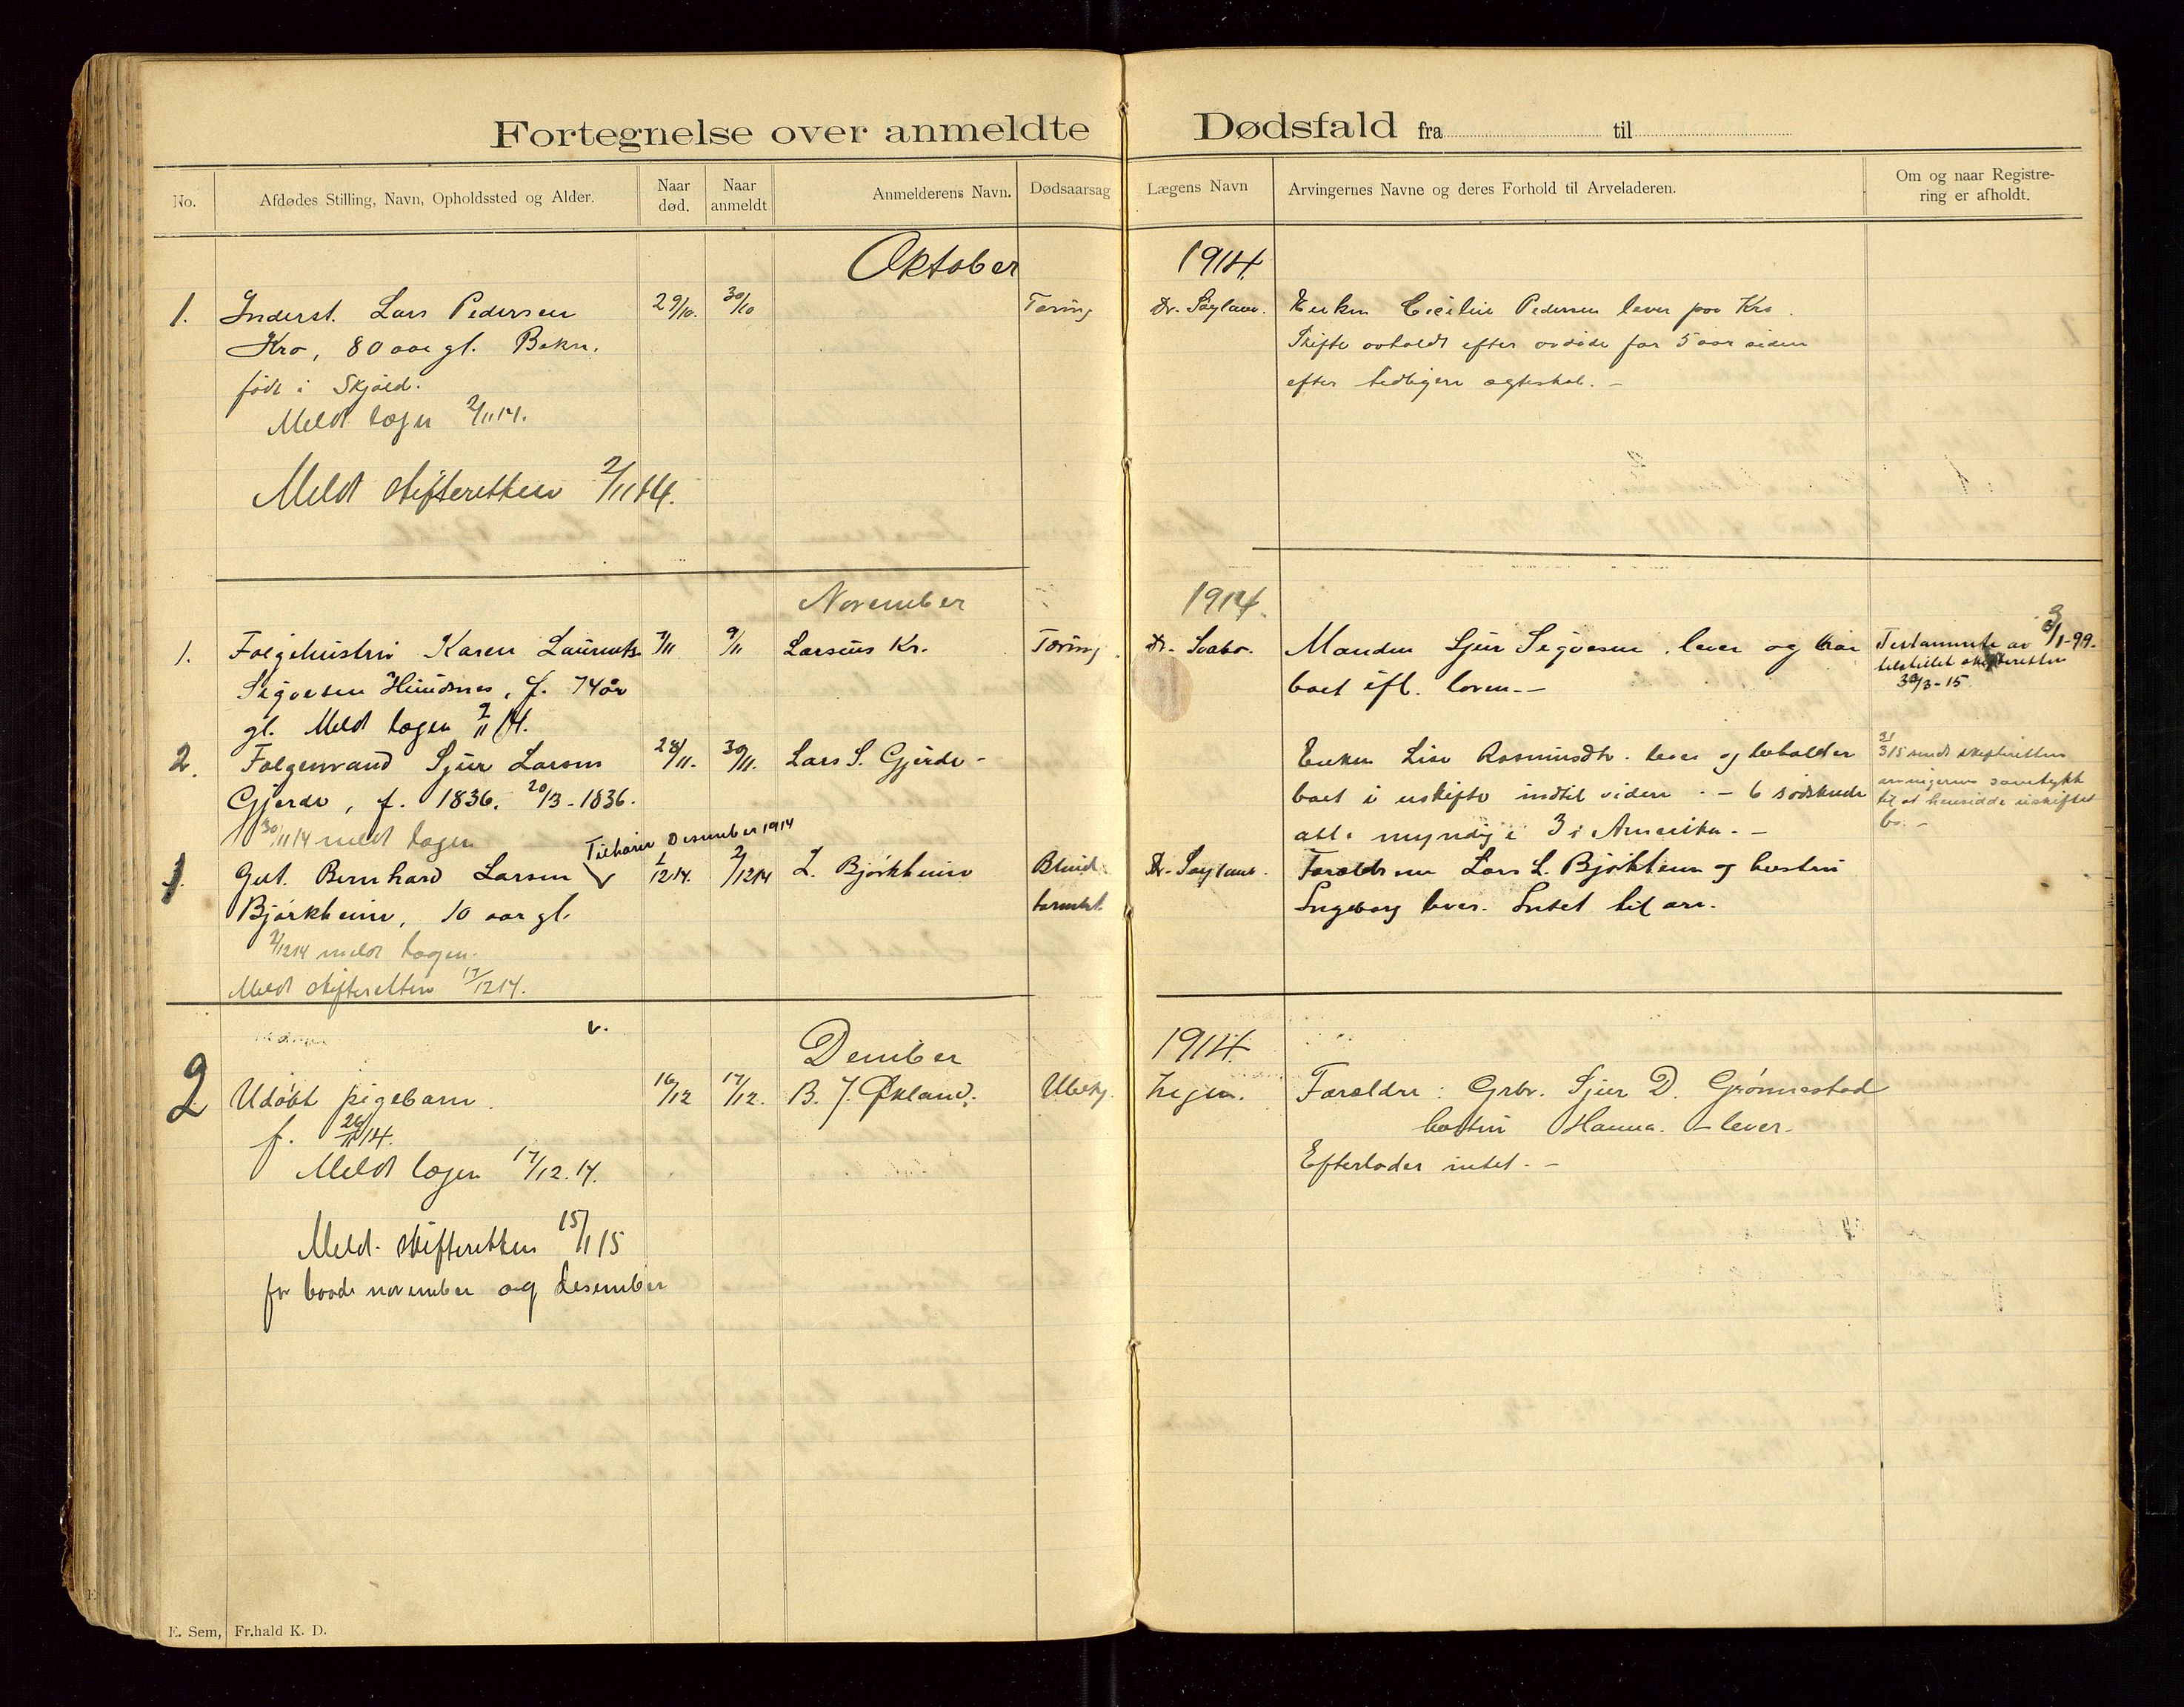 Fortegnelse over anmeldte Dødsfald fra til
No. Afdødes Stilling, Navn, Opholdssted og Alder. Naar død. Naar anmeldt Anmelderens Navn. Dødsaarsag Lægens Navn Arvingernes Navne og deres Forhold til Arveladeren. Om og naar Registrering er afholdt.
Oktober 1914.
1. Inderst. Lars Pedersen 29/10. 30/10 Tæring Dr. Søyland. Enken Cecilie Pedersen lever paa Kro.
Kro, 80 aar gl. Bokn. Skifte avholdt efter avdøde for 5 aar siden
født i Skjold. efter tidligere ægteskab. -
Meldt lægen 2/11 14.
Meldt skifteretten 2/11 14.
November 1914.
1. Følgehustru Karen Laurents 7/11 9/11 Larsius Kr. Tæring Dr. Svabo. Manden Sjur Sigvesen lever og har Testamente av 3/1-99.
Sigvesen Hundsnes, f. 74 år boet efl. loven. - tilstillet skifteretten
30/3-15
gl. Meldt lægen 9/11 14.
2. Følgemand Sjur Larsen 28/11. 30/11. Lars S. Gjerde - Enken Lise Rasmusdtr. lever og beholder 3/5 sendt skifteretten
Gjerde, f. 1836. 20/3-1836. boet i uskifte indtil videre. - 6 sødskende arvingernes samtykke
til at hensidde i uskiftet
30/11 14 meldt lægen alle myndige 3 i Amerika. - bo. -
Tilhører Desember 1914
1. Gut. Bernhard Larsen 1/12 14. 2/12 14 L. Bjørkheim Blind- Dr. Søyland. Forældrene Lars L. Bjørkheim og hustru
Bjørkheim, 10 aar gl. tarmbet. Ingeborg lever. Intet til arv.
2/12 14 meldt lægen.
Meldt skifteretten 17/12 14.
v.
Dember 1914
2 Udøbt pigebarn. 16/12 17/12. B. J. Økland. Ubekj. Ingen. Forældre: Grbr. Sjur D. Grønnestad
f. 26/11 14. hustru Hanna. - lever.
Meldt lægen 17/12. 14. Efterlader intet. -
Meldt skifteretten 15/1 15
for baade november og desember
E. Sem, Fr.hald K. D.